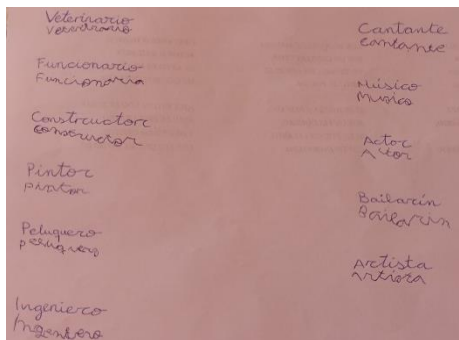 Veterinario
Veterinario
Funcionario
Funcionaria
Constructor
Constructor
Pintor
pintor
Peluquero
peluquero
Ingeniero
Ingeniero
Cantante
Cantante
Músico
Musico
Actor
Actor
Bailarín
Bailarin
Artista
Artista